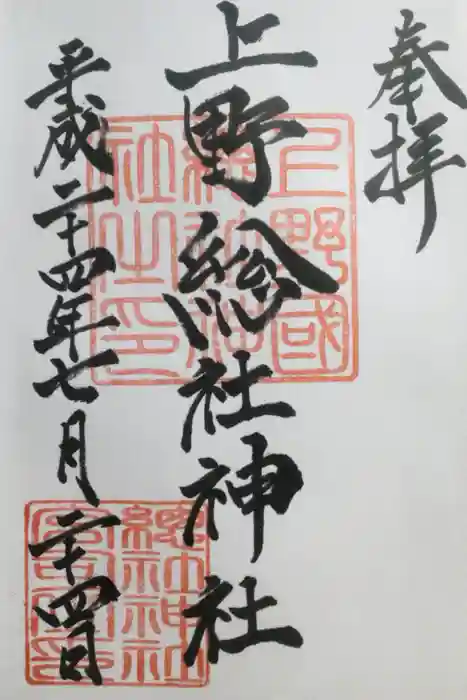 奉拝
上野総社神社
平成二十四年七月二十四日
上野國
總社神社
社之印
總社神社
宮司之印